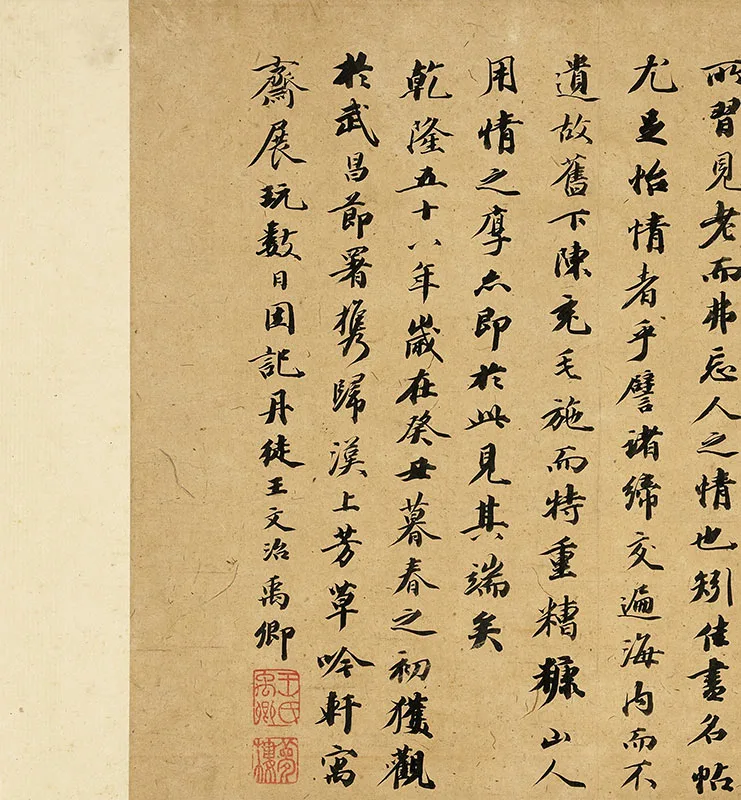 所習見老而弗忘人之情也矧佳書名帖
尤足怡情者乎譬諸締交遍海內而不
遺故舊下陳充毛施而特重糟糠山人
用情之厚亦即於此見其端矣
乾隆五十八年歲在癸丑暮春之初獲觀
於武昌節署攜歸漢上芳草吟軒寓
齋展玩數日因記丹徒王文治禹卿
王氏禹卿
夢樓